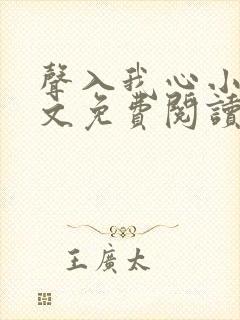 聲入我心小
文免費閱讀
王廣太